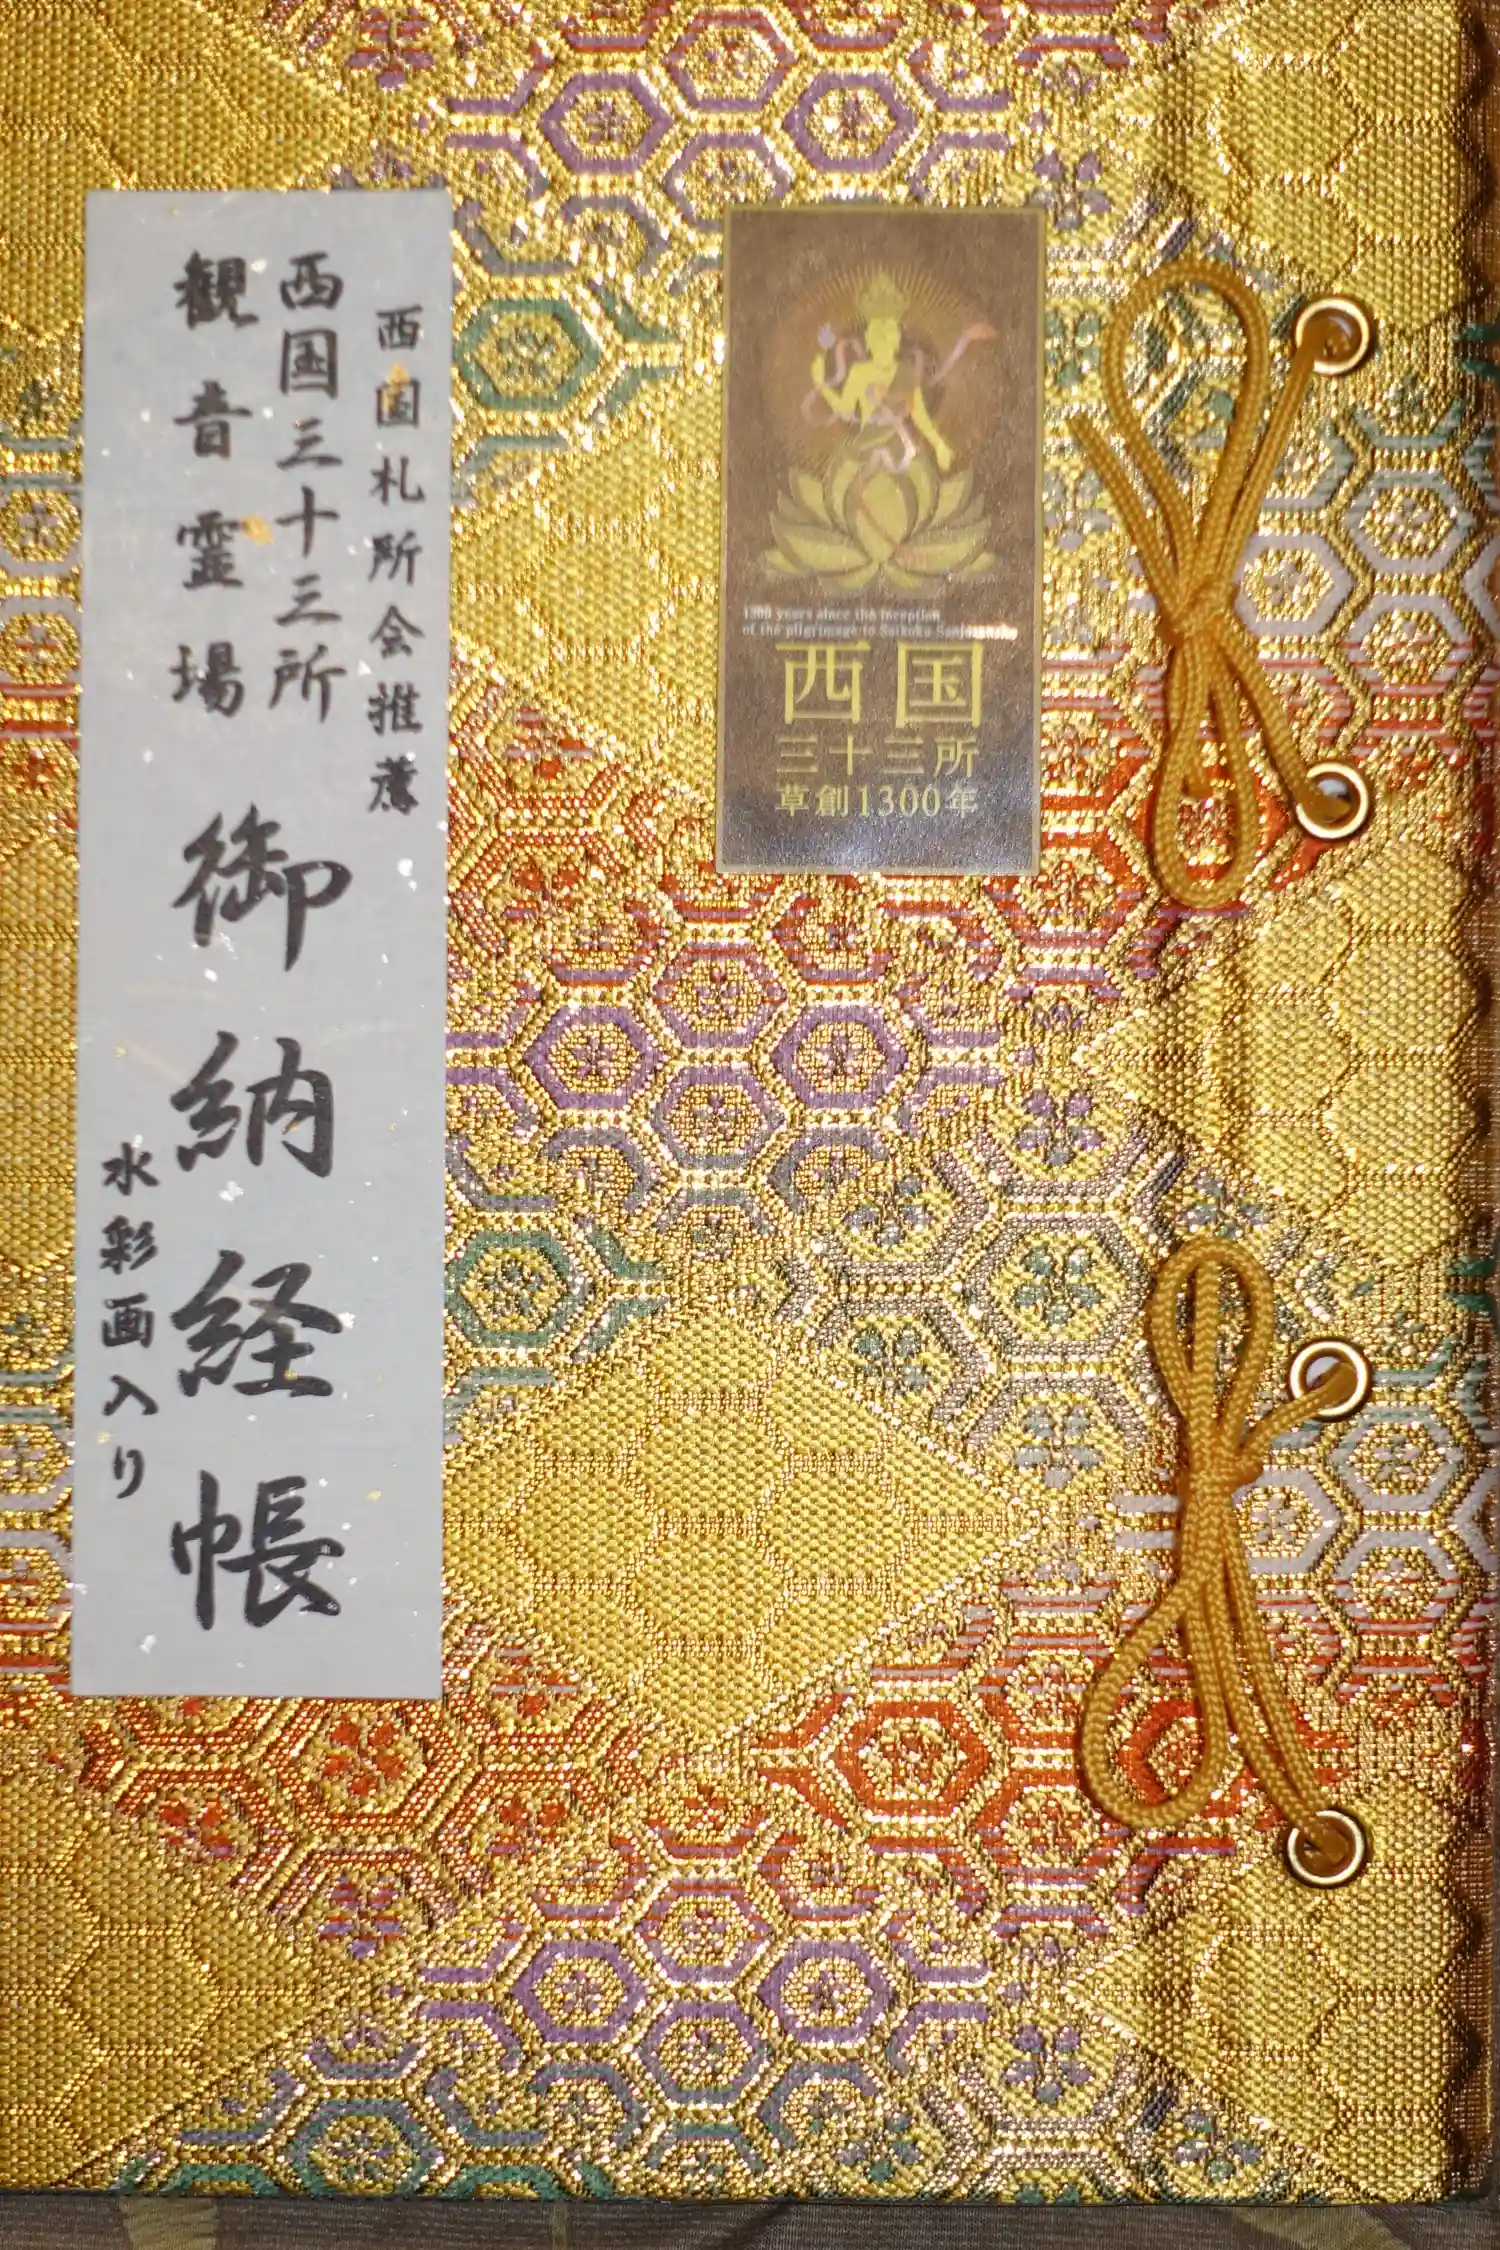 西国札所会推薦
西国三十三所
観音霊場
御納経帳
水彩画入り
1300 years since the inception
of the pilgrimage to Saikoku Sanjusansho
西国
三十三所
草創1300年